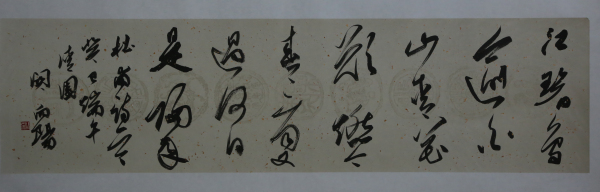 江碧鳥
逾白
山青花
欲燃今
春看又
過何日
是歸年
杜甫詩
癸巳端午
清園
向陽